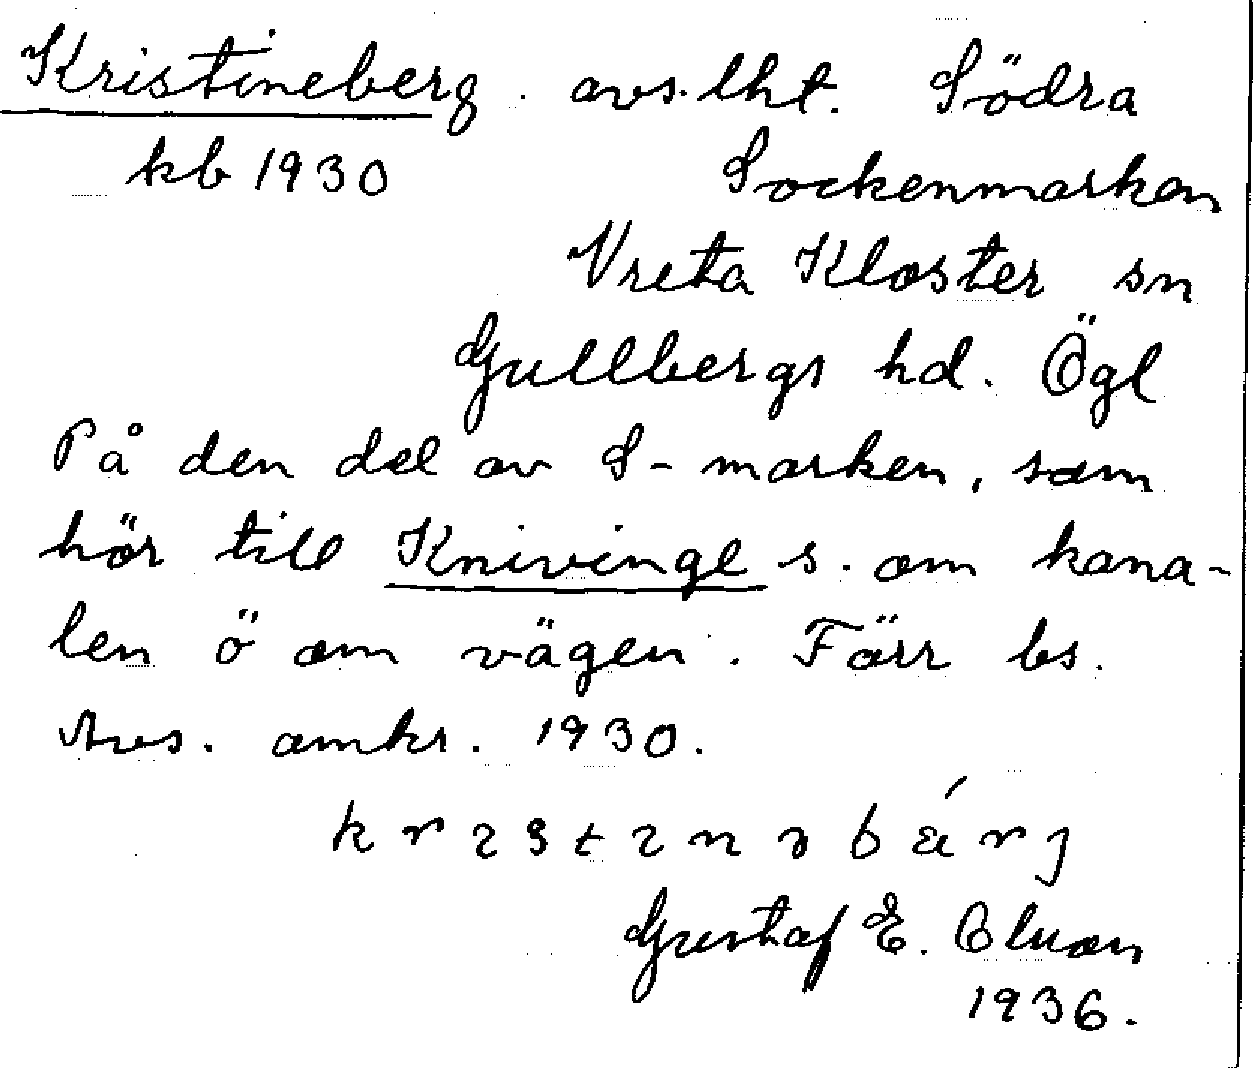 Kristineberg. avs. lht. Södra
kb 1930 Sockenmarken
Vreta Kloster sn
Gullbergs hd. Ögl
På den del av S-marken, som
hör till Knivinge s. om kana-
len ö om vägen. Förr bs.
Avs. omkr. 1930.
Gustaf E.
1936.